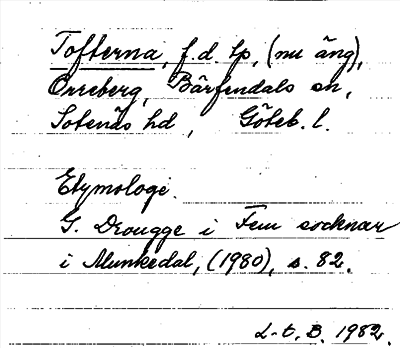 Tofterna, f.d. tp, (nu äng),
Orreberg, Bärfendals sn,
Sotenäs hd, Göteb. l.
Etymologi.
G. Drougge i Fem socknar
i Munkedal, (1980), s. 82.
L-t, B. 1982.